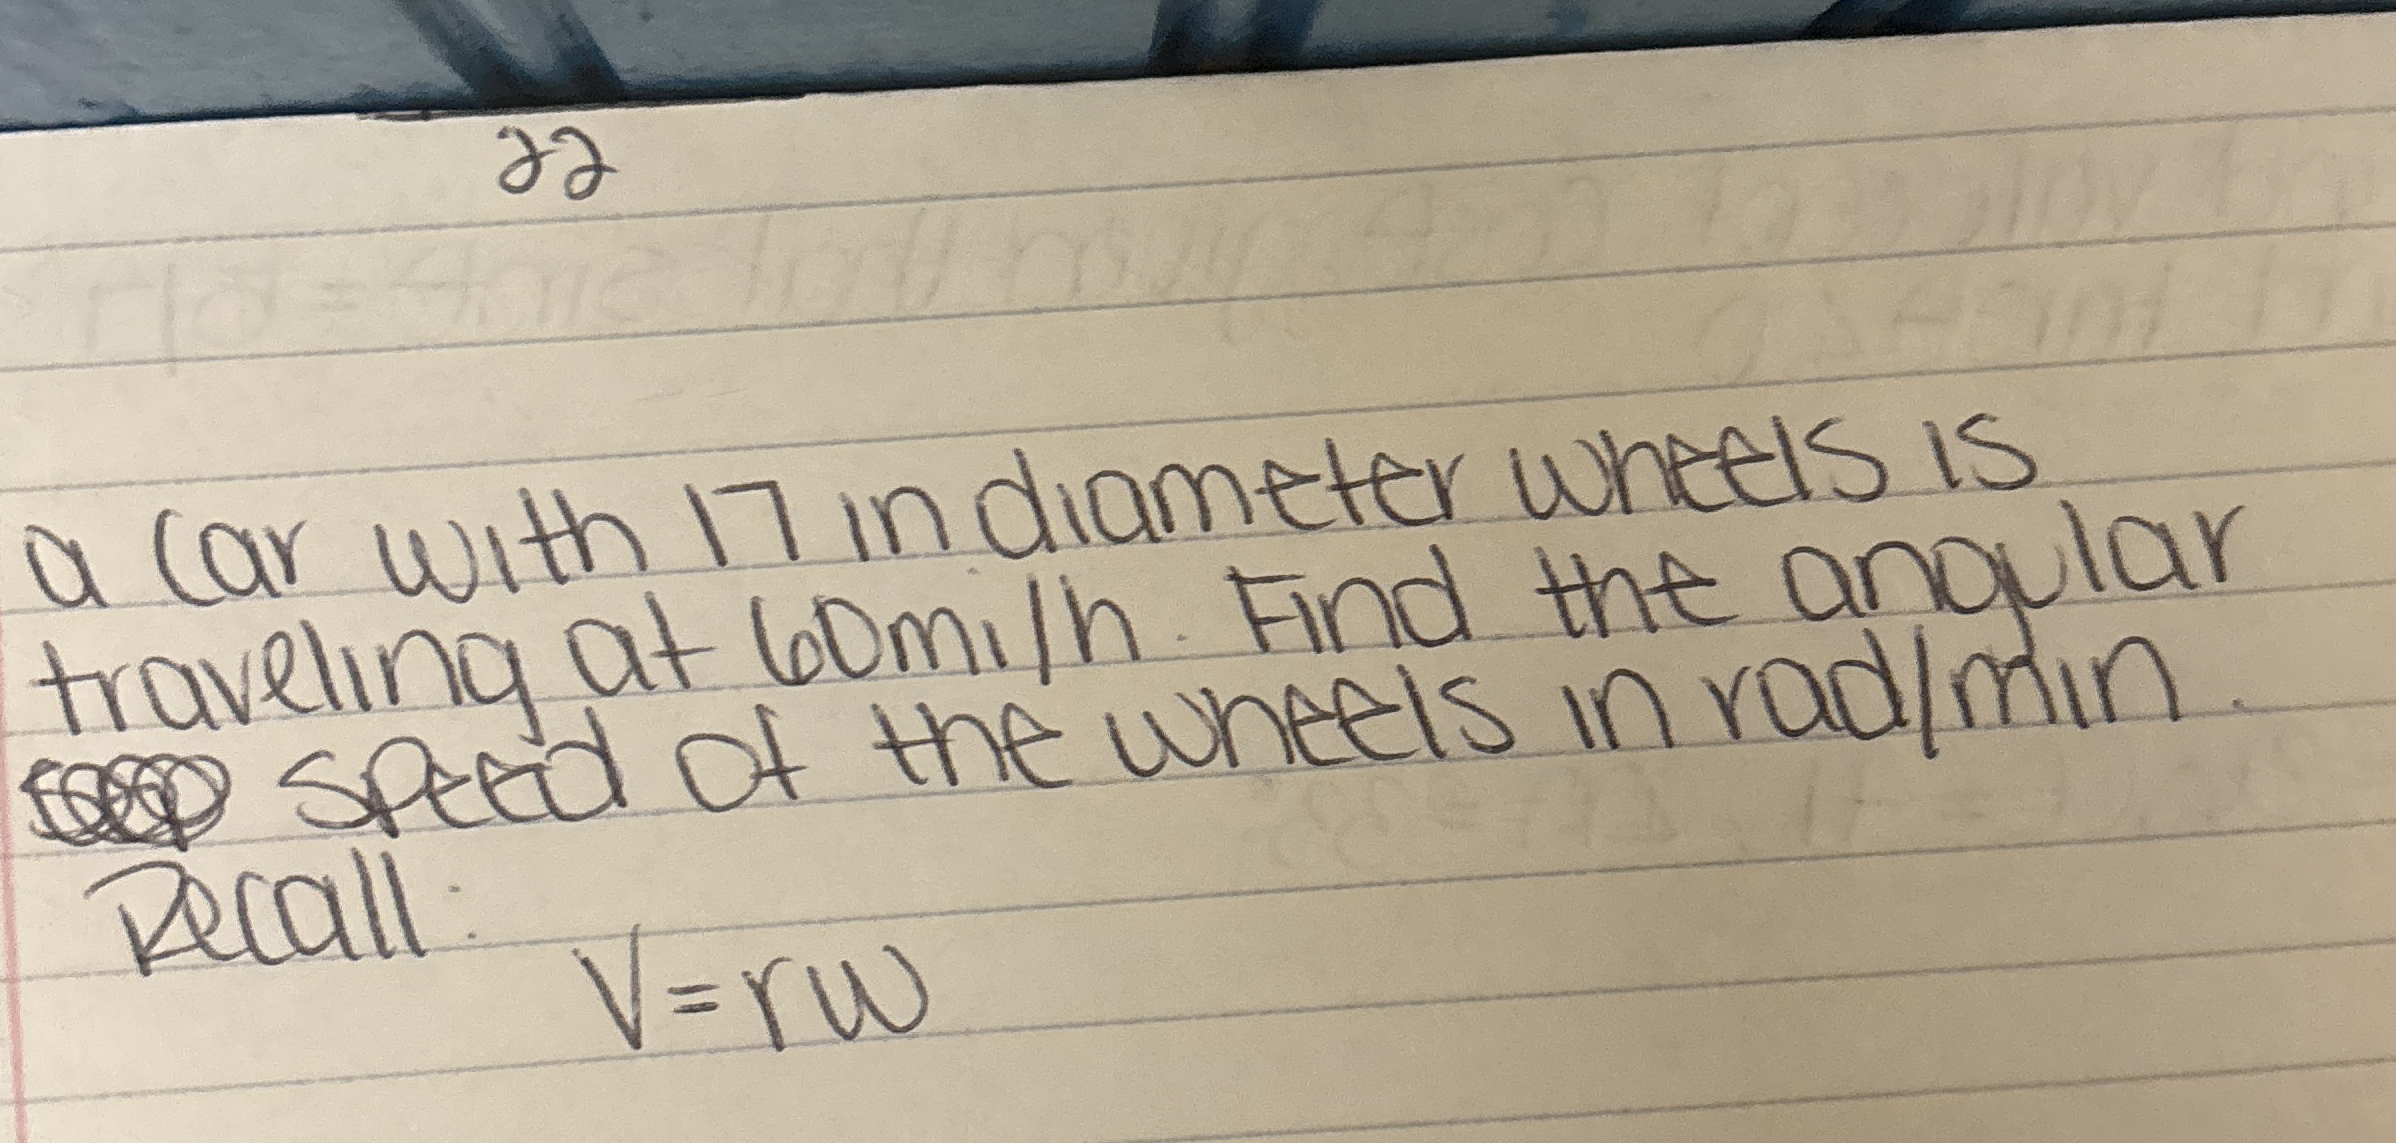 22
a car with 17 in diameter wheels is
traveling at 60mi/h. Find the angular
speed of the wheels in rad/min.
Recall:
V=rw